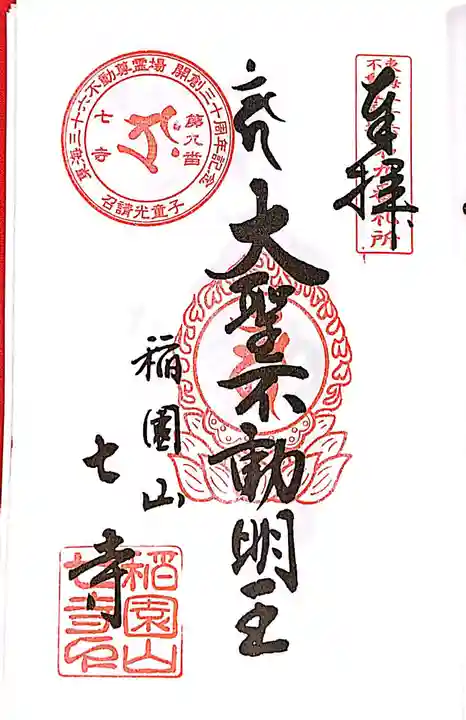 奉拝
大聖不動明王
稲園山
七寺
東海三十六不動尊霊場 開創三十周年記念
第九番
七寺
召請光童子
稲園山
七寺印